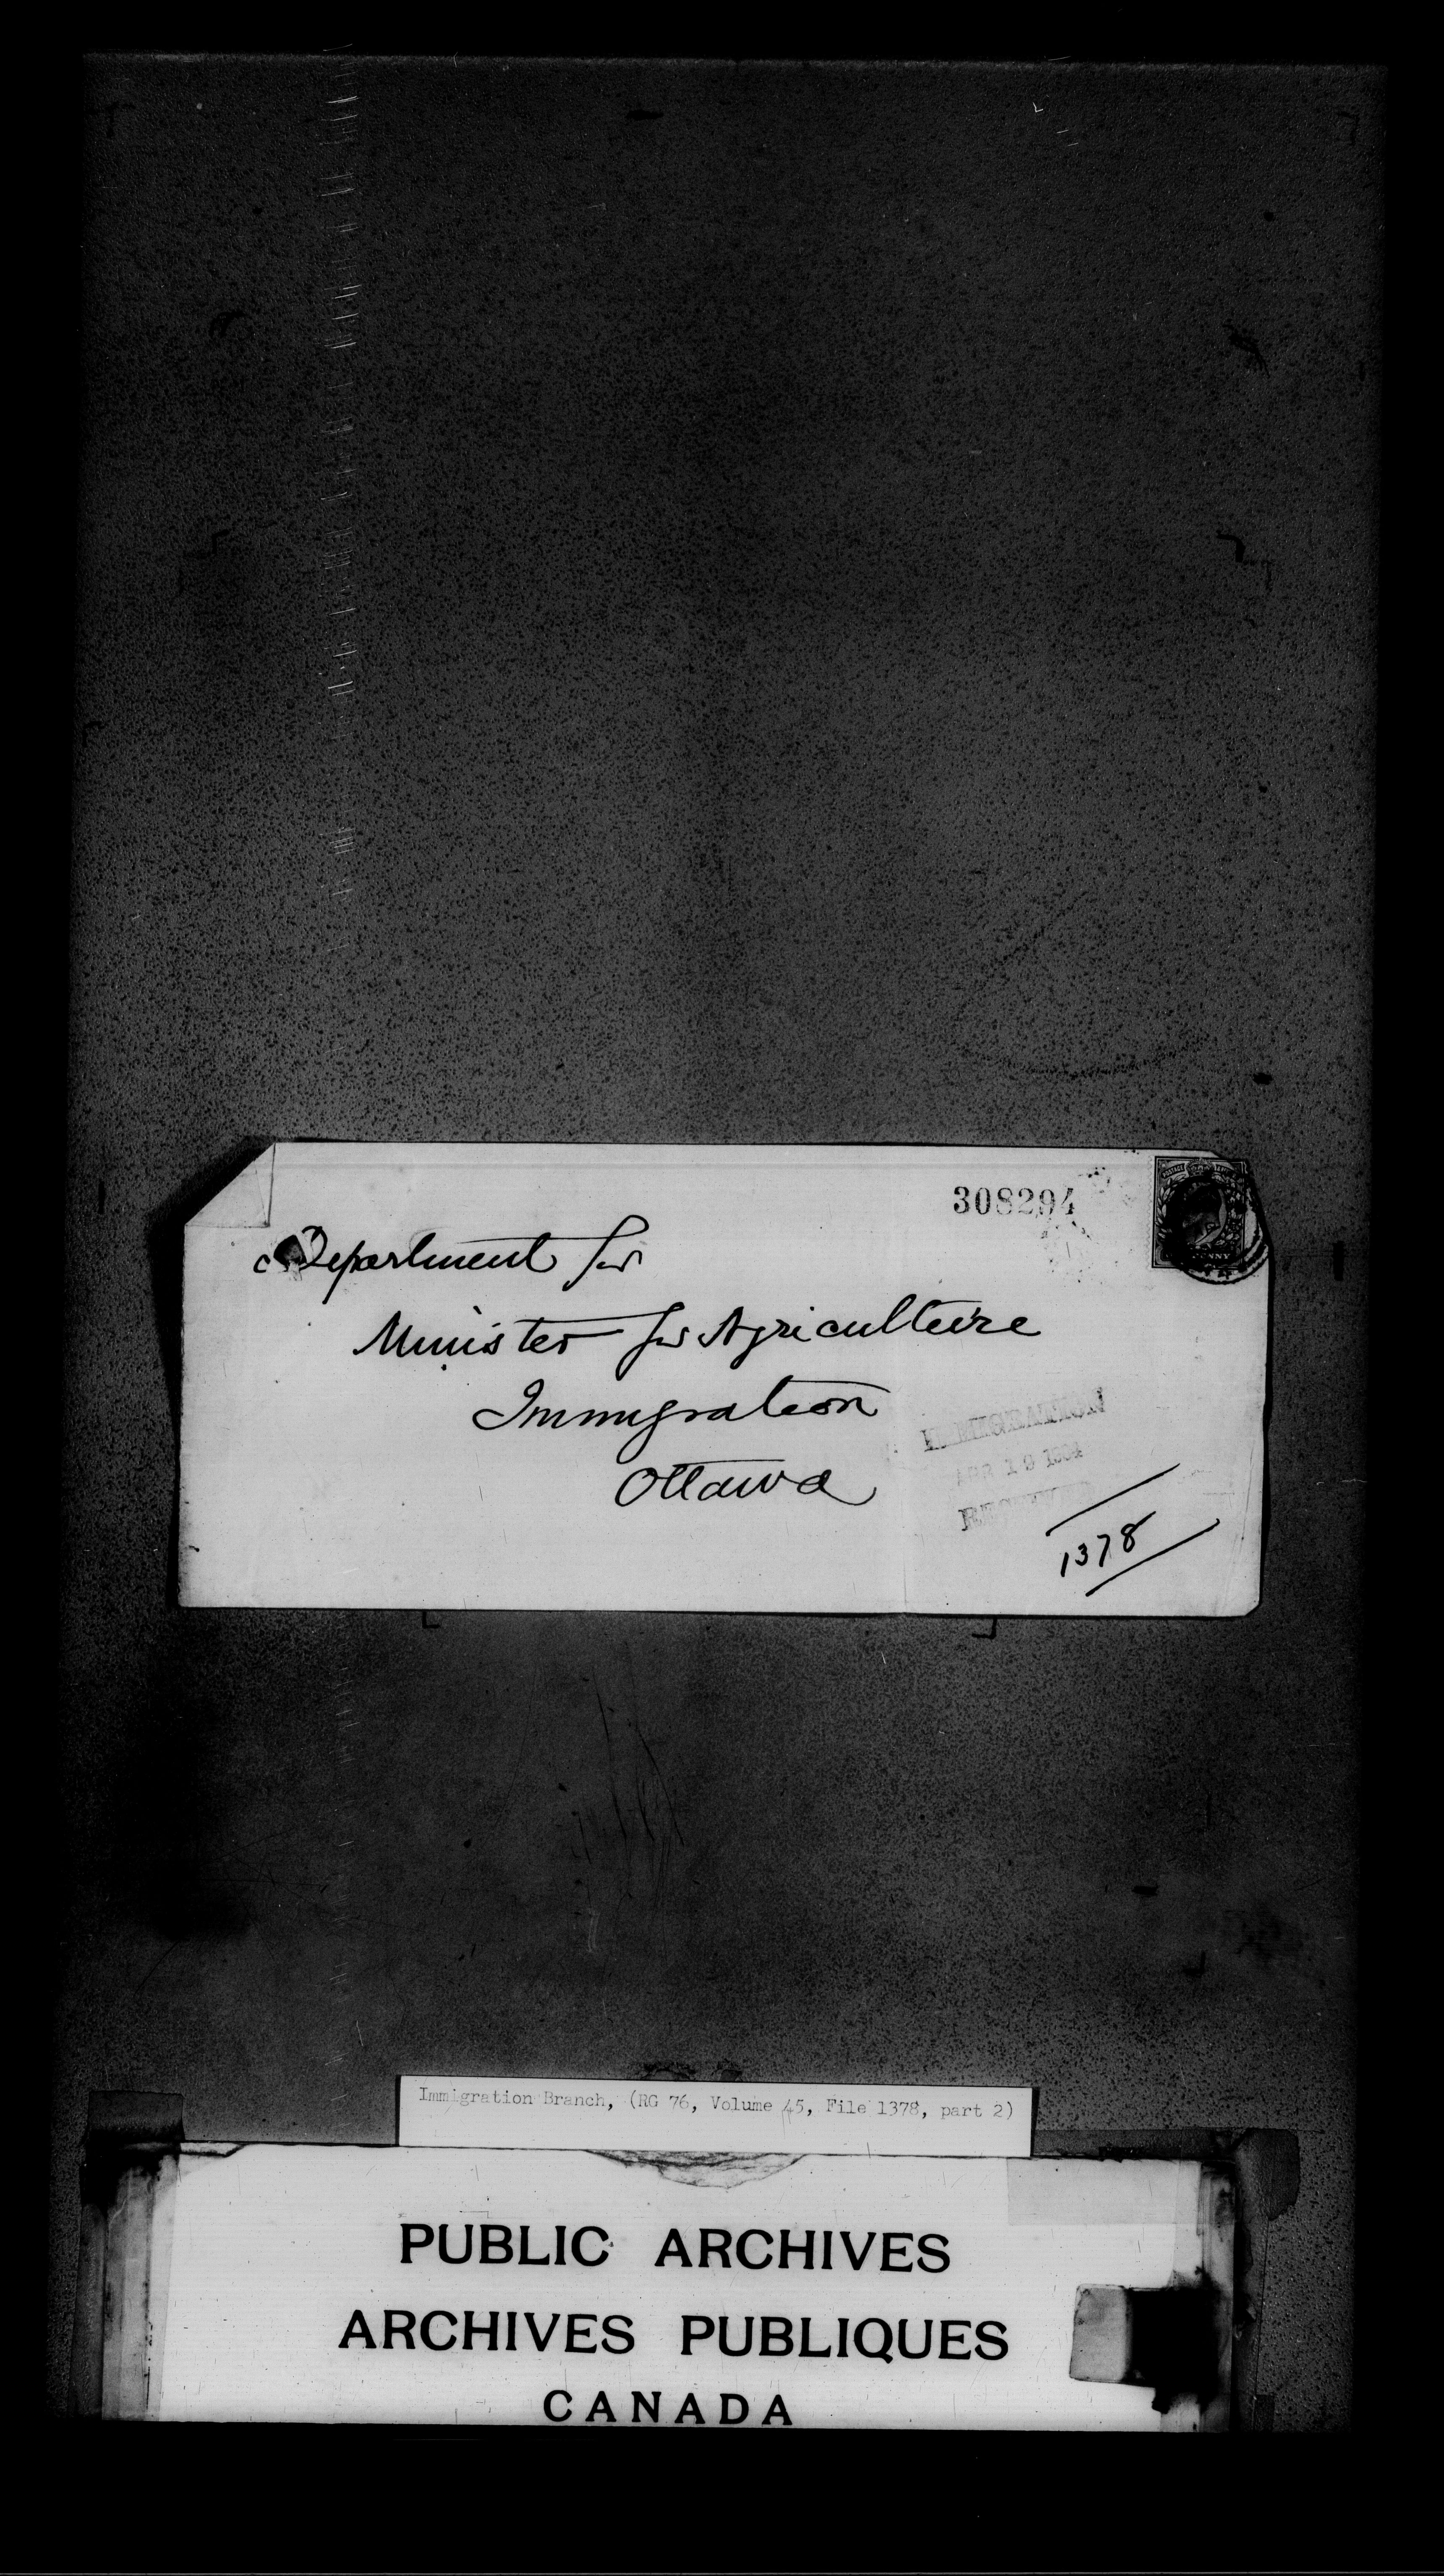 308294
Department for
Minister for Agriculture
Immigration
Ottawa
IMMIGRATION
APR 19 1904
RECEIVED
1378
Immigration Branch, (RG 76, Volume 45, File 1378, part 2)
PUBLIC ARCHIVES
ARCHIVES PUBLIQUES
CANADA